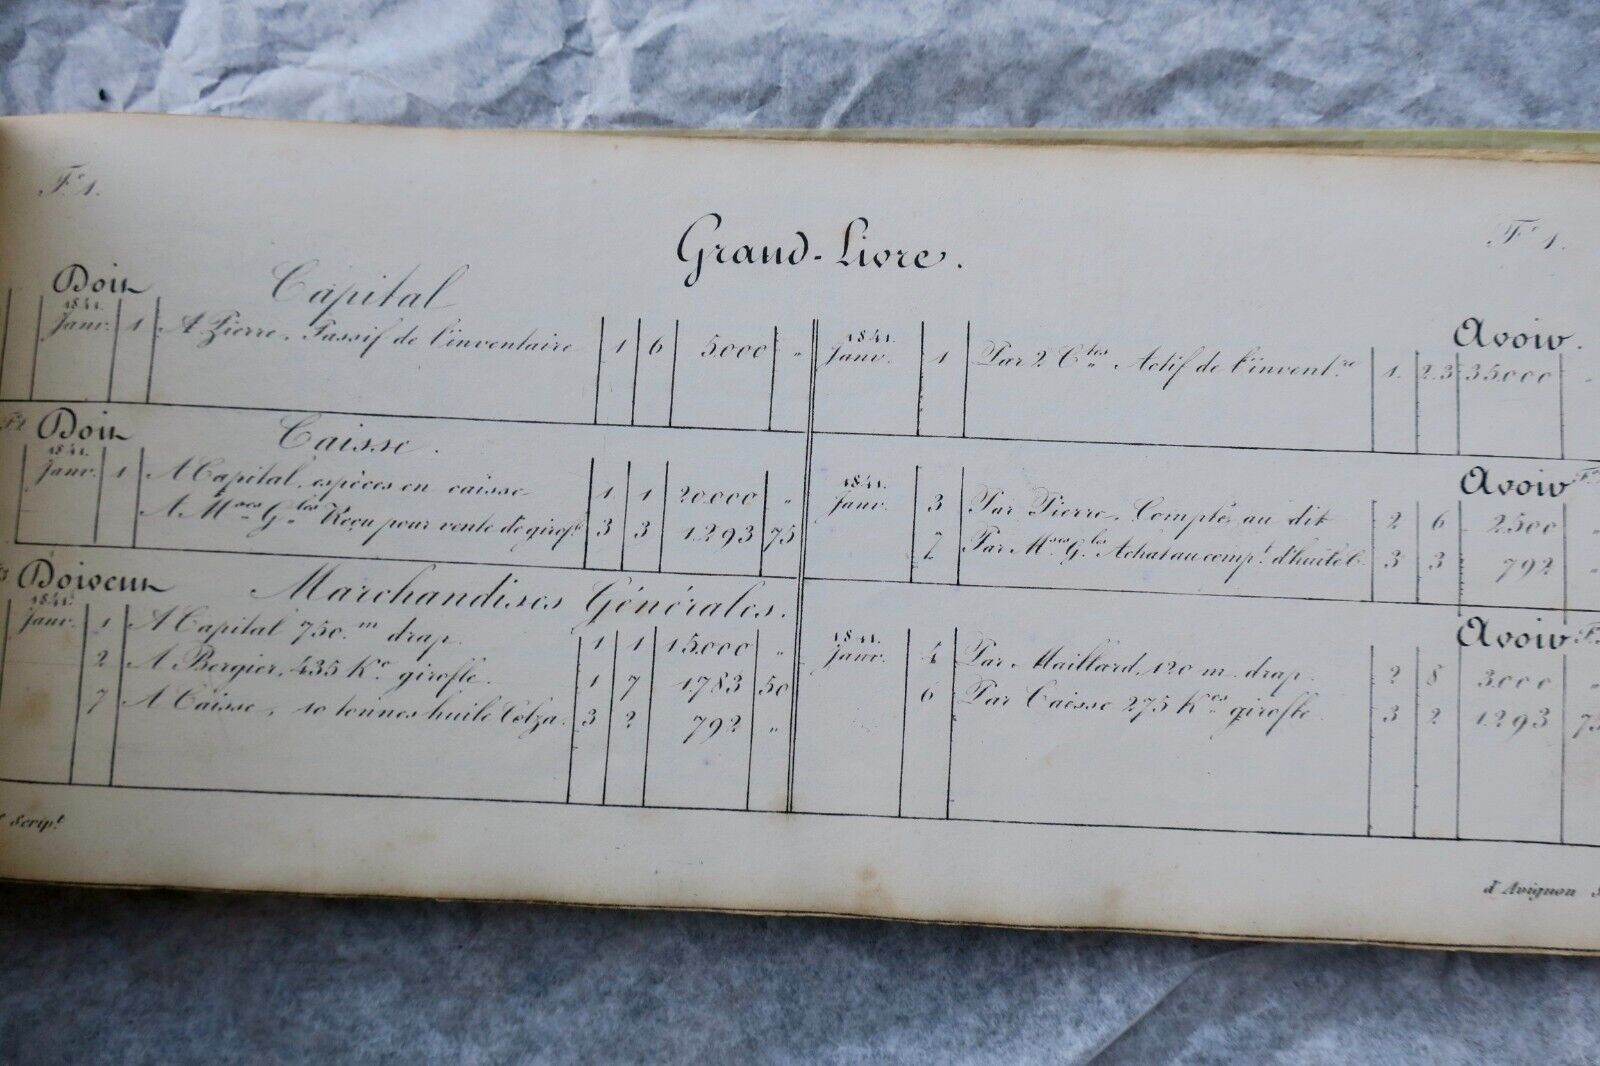 F.º 1.
F.º 1
Grand-Livre.
Doit Capital Avoir.
1841. Janv. 1 A Pierre, Passif de l'inventaire 1 6 5000 "
1841. Janv. 1 Par 2 C.tes Actif de l'invent.re 1. 2.3 35000 "
F.º 1 Doit Caisse. Avoir F.º
1841. Janv. 1 A Capital, espèces en caisse 1 1 20.000 "
A M.ses G.les Reçu pour vente de girofl. 3 3 1293 75
1841. Janv. 3 Par Pierre, Compté au dit 2 6 2500 "
7 Par M.ses G.les Achat au comp.t d'huile 3 3 792 "
Doivent Marchandises Générales. Avoir F.º
1841. Janv. 1 A Capital 750. m drap. 1 1 15.000 "
2 A Bergier, 435 K.º girofle. 1 7 1783 50
7 A Caisse, 10 tonnes huile Colza. 3 2 792 "
1841. Janv. 4 Par Maillard, 120 m. drap. 2 8 3.000 "
6 Par Caisse 275 K.os girofle. 3 2 1293 75
Script.
d'Avignon